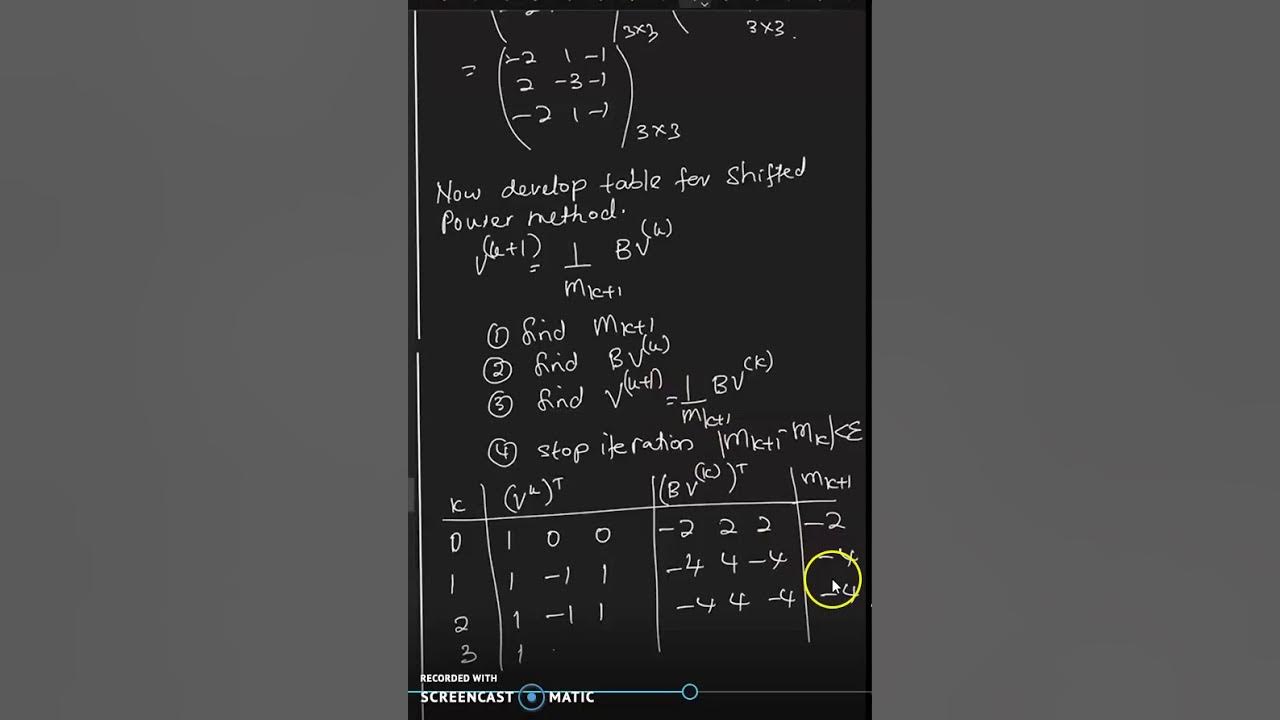 -2
3×3
3×3.
= -2 1 -1
2 -3 -1
-2 1 -1
3×3
Now develop table for Shifted
Power method.
V^(k+1) = 1/m_k+1 BV^(k)
① find m_k+1
② find BV^(k)
③ find V^(k+1) = 1/m_k+1 BV^(k)
④ stop iteration |m_k+1 - m_k| < ε
k (V^k)^T (BV^(k))^T m_k+1
0 1 0 0 -2 2 2 -2
1 1 -1 1 -4 4 -4 -4
2 1 -1 1 -4 4 -4 -4
3 1
RECORDED WITH
SCREENCAST MATIC